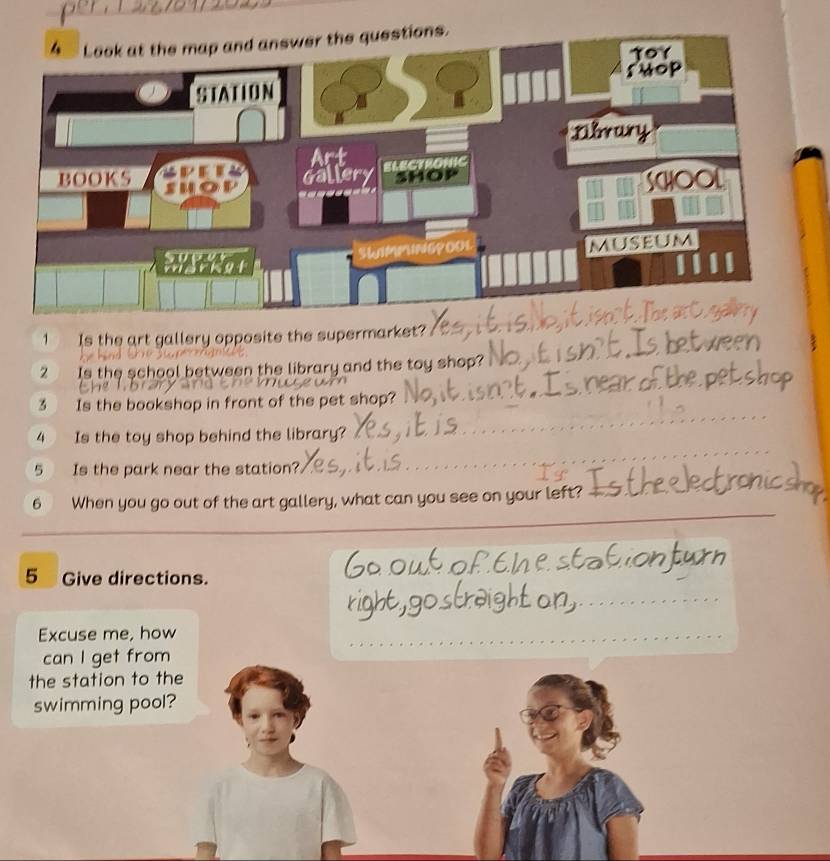 4 Look at the map and answer the questions.
TOY SHOP
STATION
Library
BOOKS
PETS SHOP
Art Gallery
ELECTRONIC SHOP
SCHOOL
SWIMMINGPOOL
MUSEUM
SUPERMARKET
1 Is the art gallery opposite the supermarket? Yes, it is. No, it isn't. The art gallery
behind the supermarket.
2 Is the school between the library and the toy shop? No, it isn't. Is between
the library and the museum
3 Is the bookshop in front of the pet shop? No, it isn't. Is near of the pet shop
4 Is the toy shop behind the library? Yes, it is
5 Is the park near the station? Yes, it is
Is
6 When you go out of the art gallery, what can you see on your left? Is the electronic shop.
5 Give directions.
Go out of the station turn
right, go straight on,
Excuse me, how
can I get from
the station to the
swimming pool?